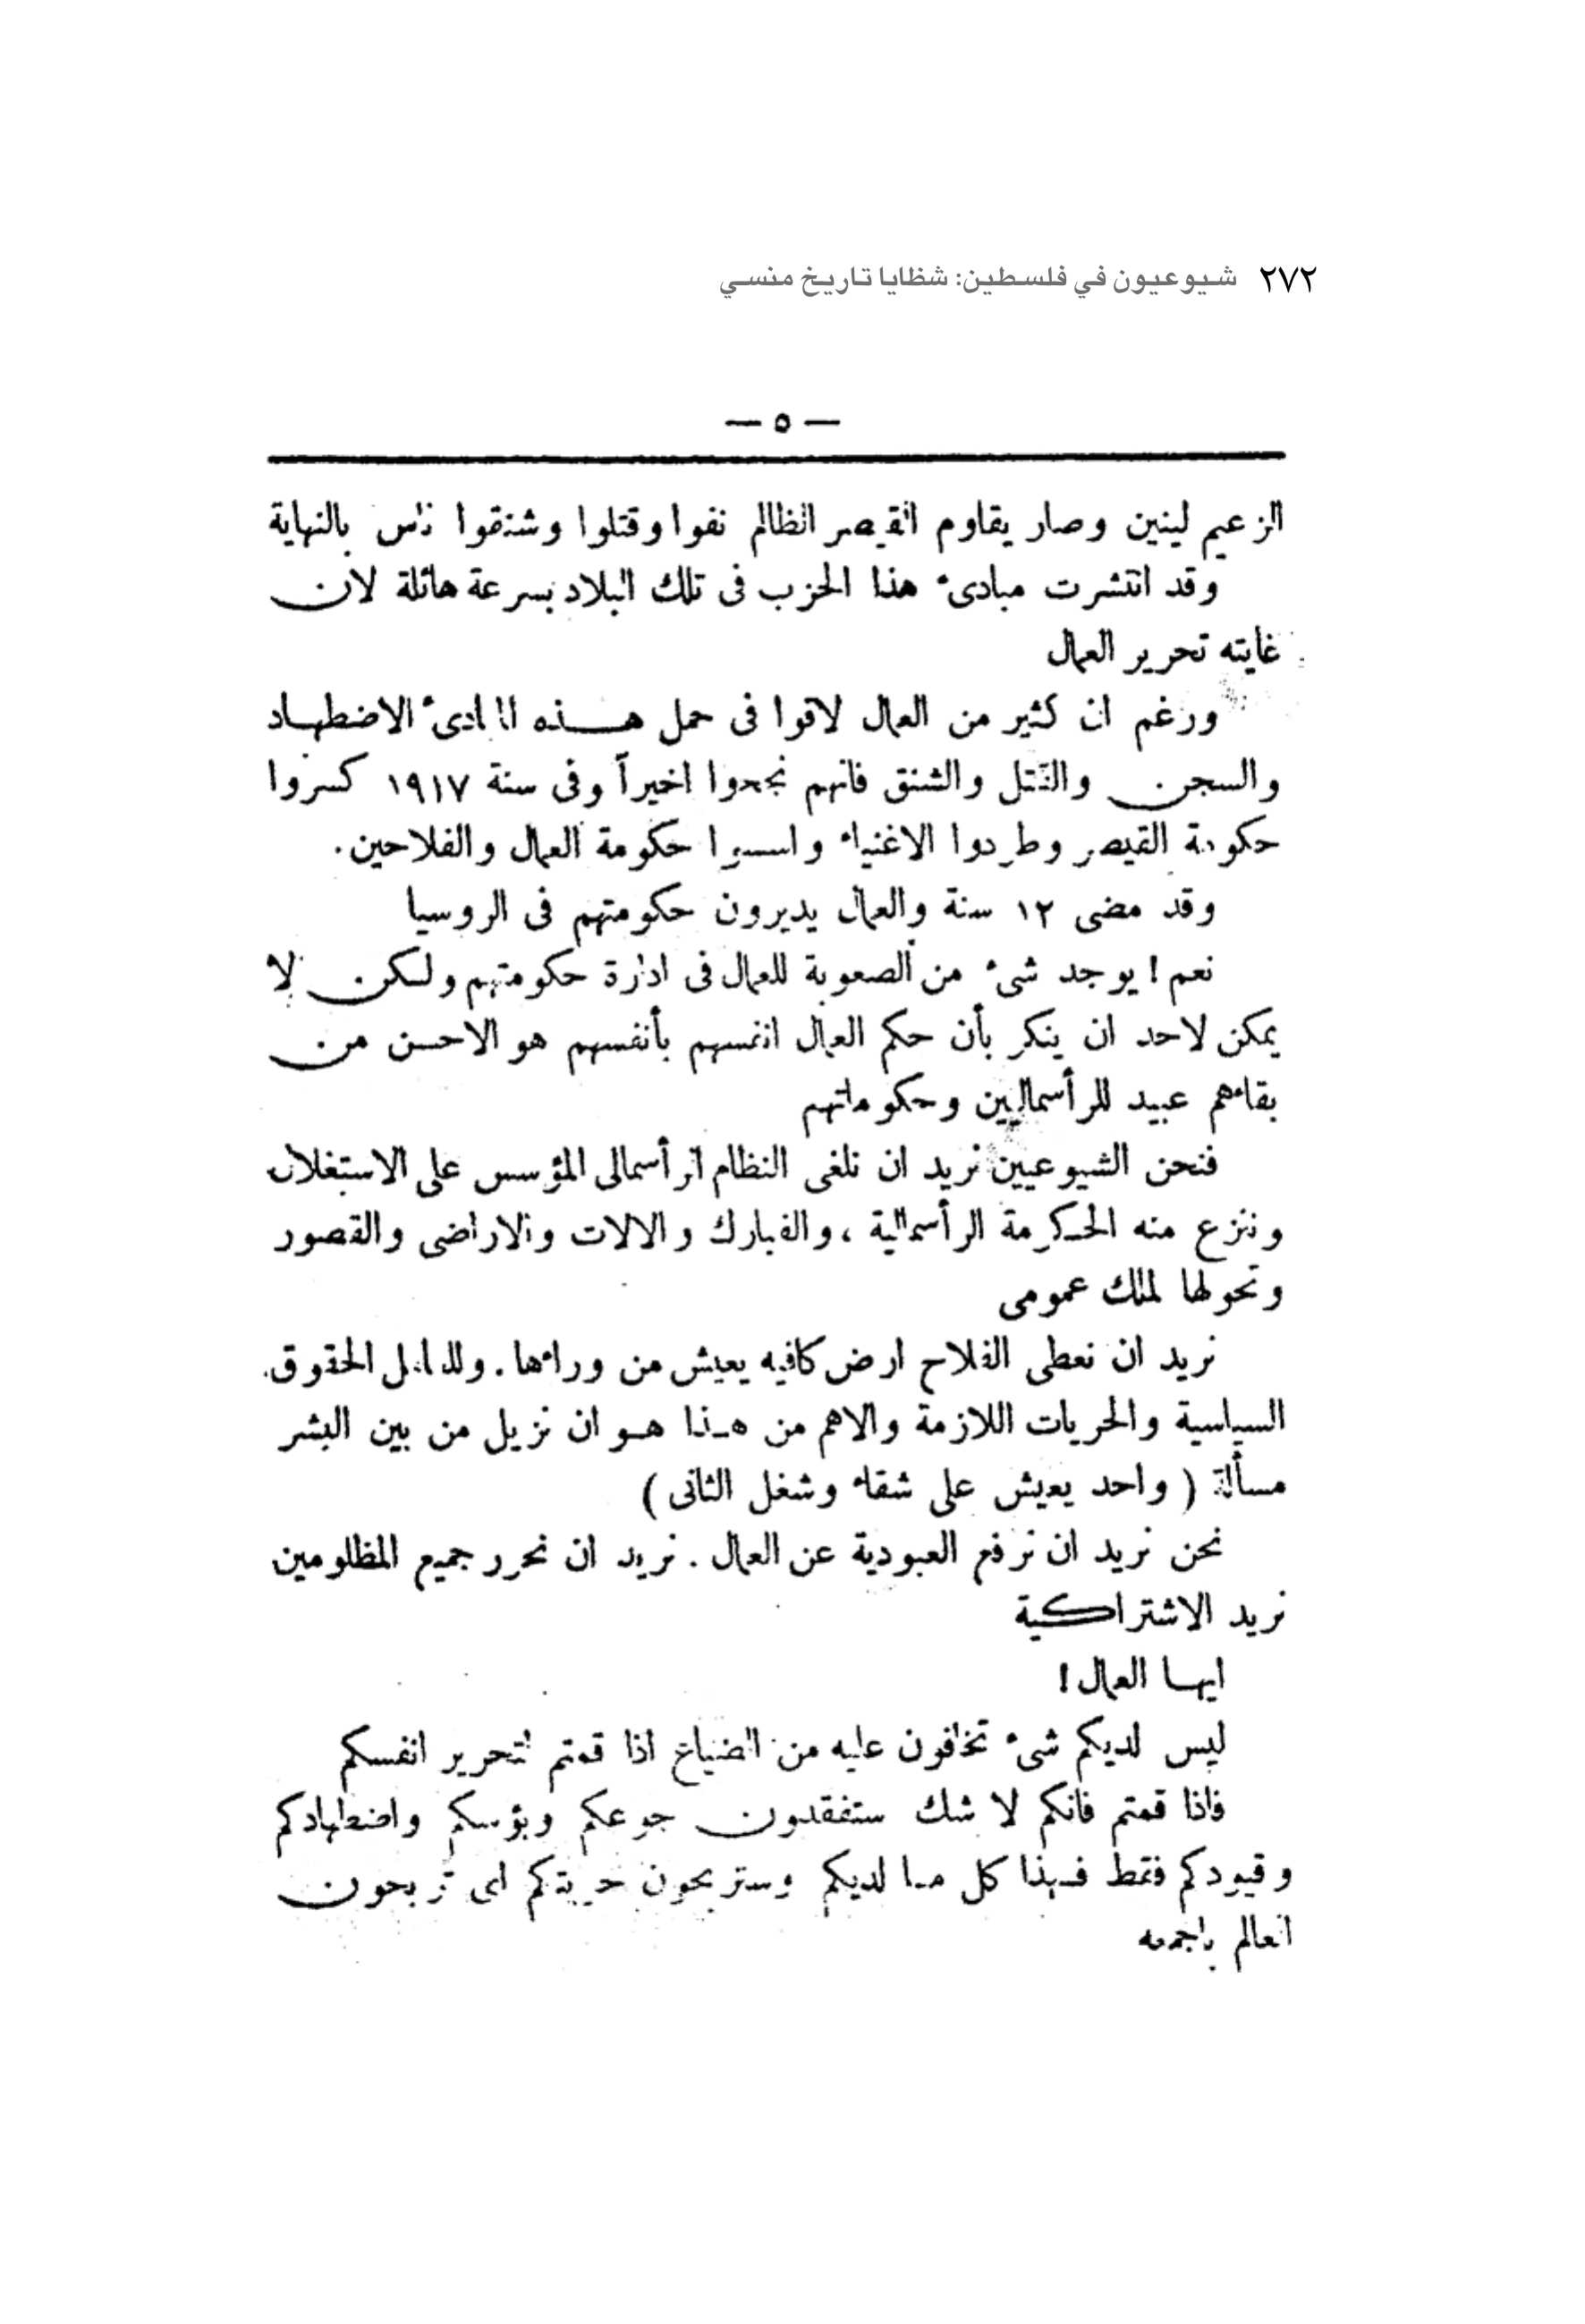 ٢٧٢ شيوعيون في فلسطين: شظايا تاريخ منسي
— ٥ —
الزعيم لينين وصار يقاوم القيصر الظالم نفوا وقتلوا وشنقوا ناس بالنهاية
وقد انتشرت مبادىء هذا الحزب فى تلك البلاد بسرعة هائلة لان
غايته تحرير العمال
ورغم ان كثير من العمال لاقوا فى حمل هذه المبادىء الاضطهاد
والسجن والقتل والشنق فانهم نجحوا اخيراً وفى سنة ١٩١٧ كسروا
حكومة القيصر وطردوا الاغنياء واسسوا حكومة العمال والفلاحين.
وقد مضى ١٢ سنة والعمال يديرون حكومتهم فى الروسيا
نعم ! يوجد شىء من الصعوبة للعمال فى ادارة حكومتهم ولكن لا
يمكن لاحد ان ينكر بأن حكم العمال انفسهم بأنفسهم هو الاحسن من
بقاءهم عبيد للرأسماليين وحكوماتهم
فنحن الشيوعيين نريد ان نلغى النظام الرأسمالى المؤسس على الاستغلال
وننزع منه الحكومة الرأسمالية ، والفبارك والالات والاراضى والقصور
ونحولها لملك عمومى
نريد ان نعطى الفلاح ارض كافيه يعيش من وراءها. وللعامل الحقوق
السياسية والحريات اللازمة والاهم من هذا هو ان نزيل من بين البشر
مسألة ( واحد يعيش على شقاء وشغل الثانى )
نحن نريد ان نرفع العبودية عن العمال . نريد ان نحرر جميع المظلومين
نريد الاشتراكية
ايها العمال !
ليس لديكم شىء تخافون عليه من الضياع اذا قمتم لتحرير انفسكم
فاذا قمتم فانكم لا شك ستفقدون جوعكم وبؤسكم واضطهادكم
وقيودكم فقط فهذا كل ما لديكم وستربحون حريتكم اى تربحون
العالم باجمعه